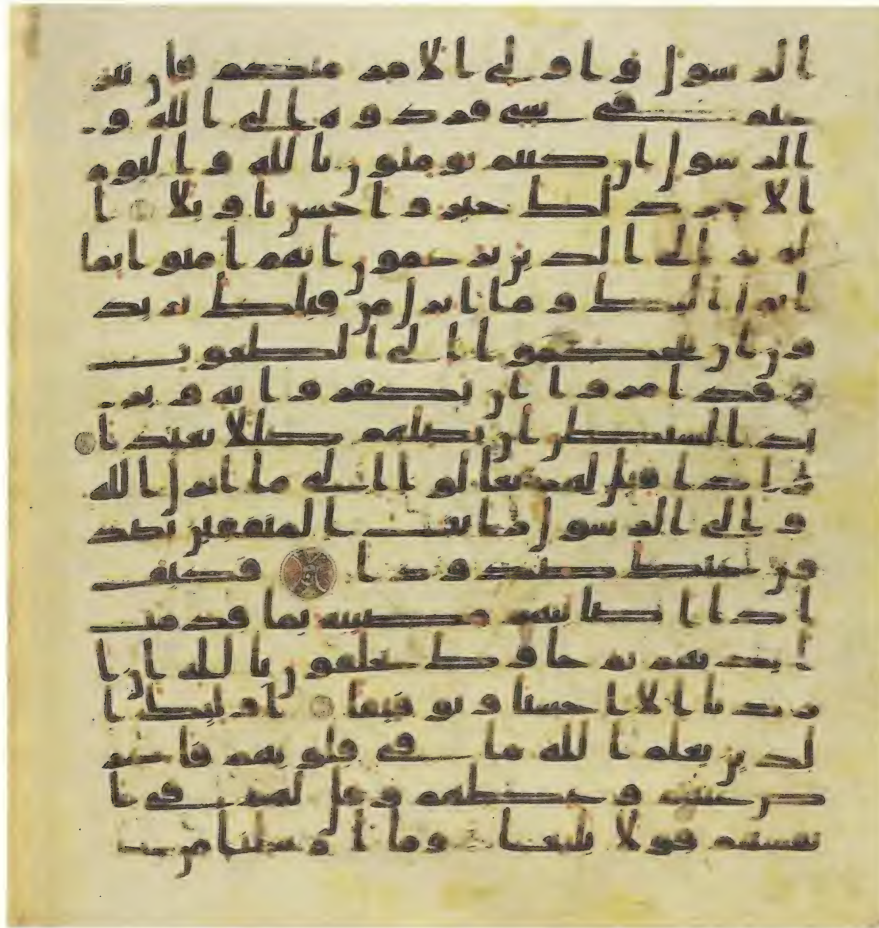 الرسول و اولى الامر منكم فان تنز
عتم فى شى فردوه الى الله و
الرسول ان كنتم تومنون بالله و اليوم
الاخر ذلك خير و احسن تاويلا ا
لم تر الى الذين يزعمون انهم امنوا بما
انزل اليك و ما انزل من قبلك يريد
ون ان يتحكموا الى الطغوت
و قد امروا ان يكفروا به و ير
يد الشيطن ان يضلهم ضللا بعيدا
و اذا قيل لهم تعالوا الى ما انزل الله
و الى الرسول رايت المنفقين يصد
ون عنك صدودا فكيف
اذا اصابتهم مصيبه بما قدمت
ايديهم ثم جاوك يحلفون بالله ان ا
ردنا الا احسنا و توفيقا اوليك ا
لذين يعلم الله ما فى قلوبهم فاعر
ض عنهم و عظهم و قل لهم فى ا
نفسهم قولا بليغا و ما ارسلنا من ر